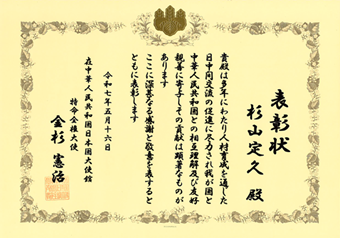 表彰状
杉山定久 殿
貴殿は多年にわたり人材育成を通じた
日中間交流の促進に尽力され我が国と
中華人民共和国との相互理解及び友好
親善に寄与しその貢献は顕著なものが
あります
ここに深甚なる感謝と敬意を表すると
ともに表彰します
令和七年五月十六日
在中華人民共和国日本国大使館
特命全権大使
金杉憲治